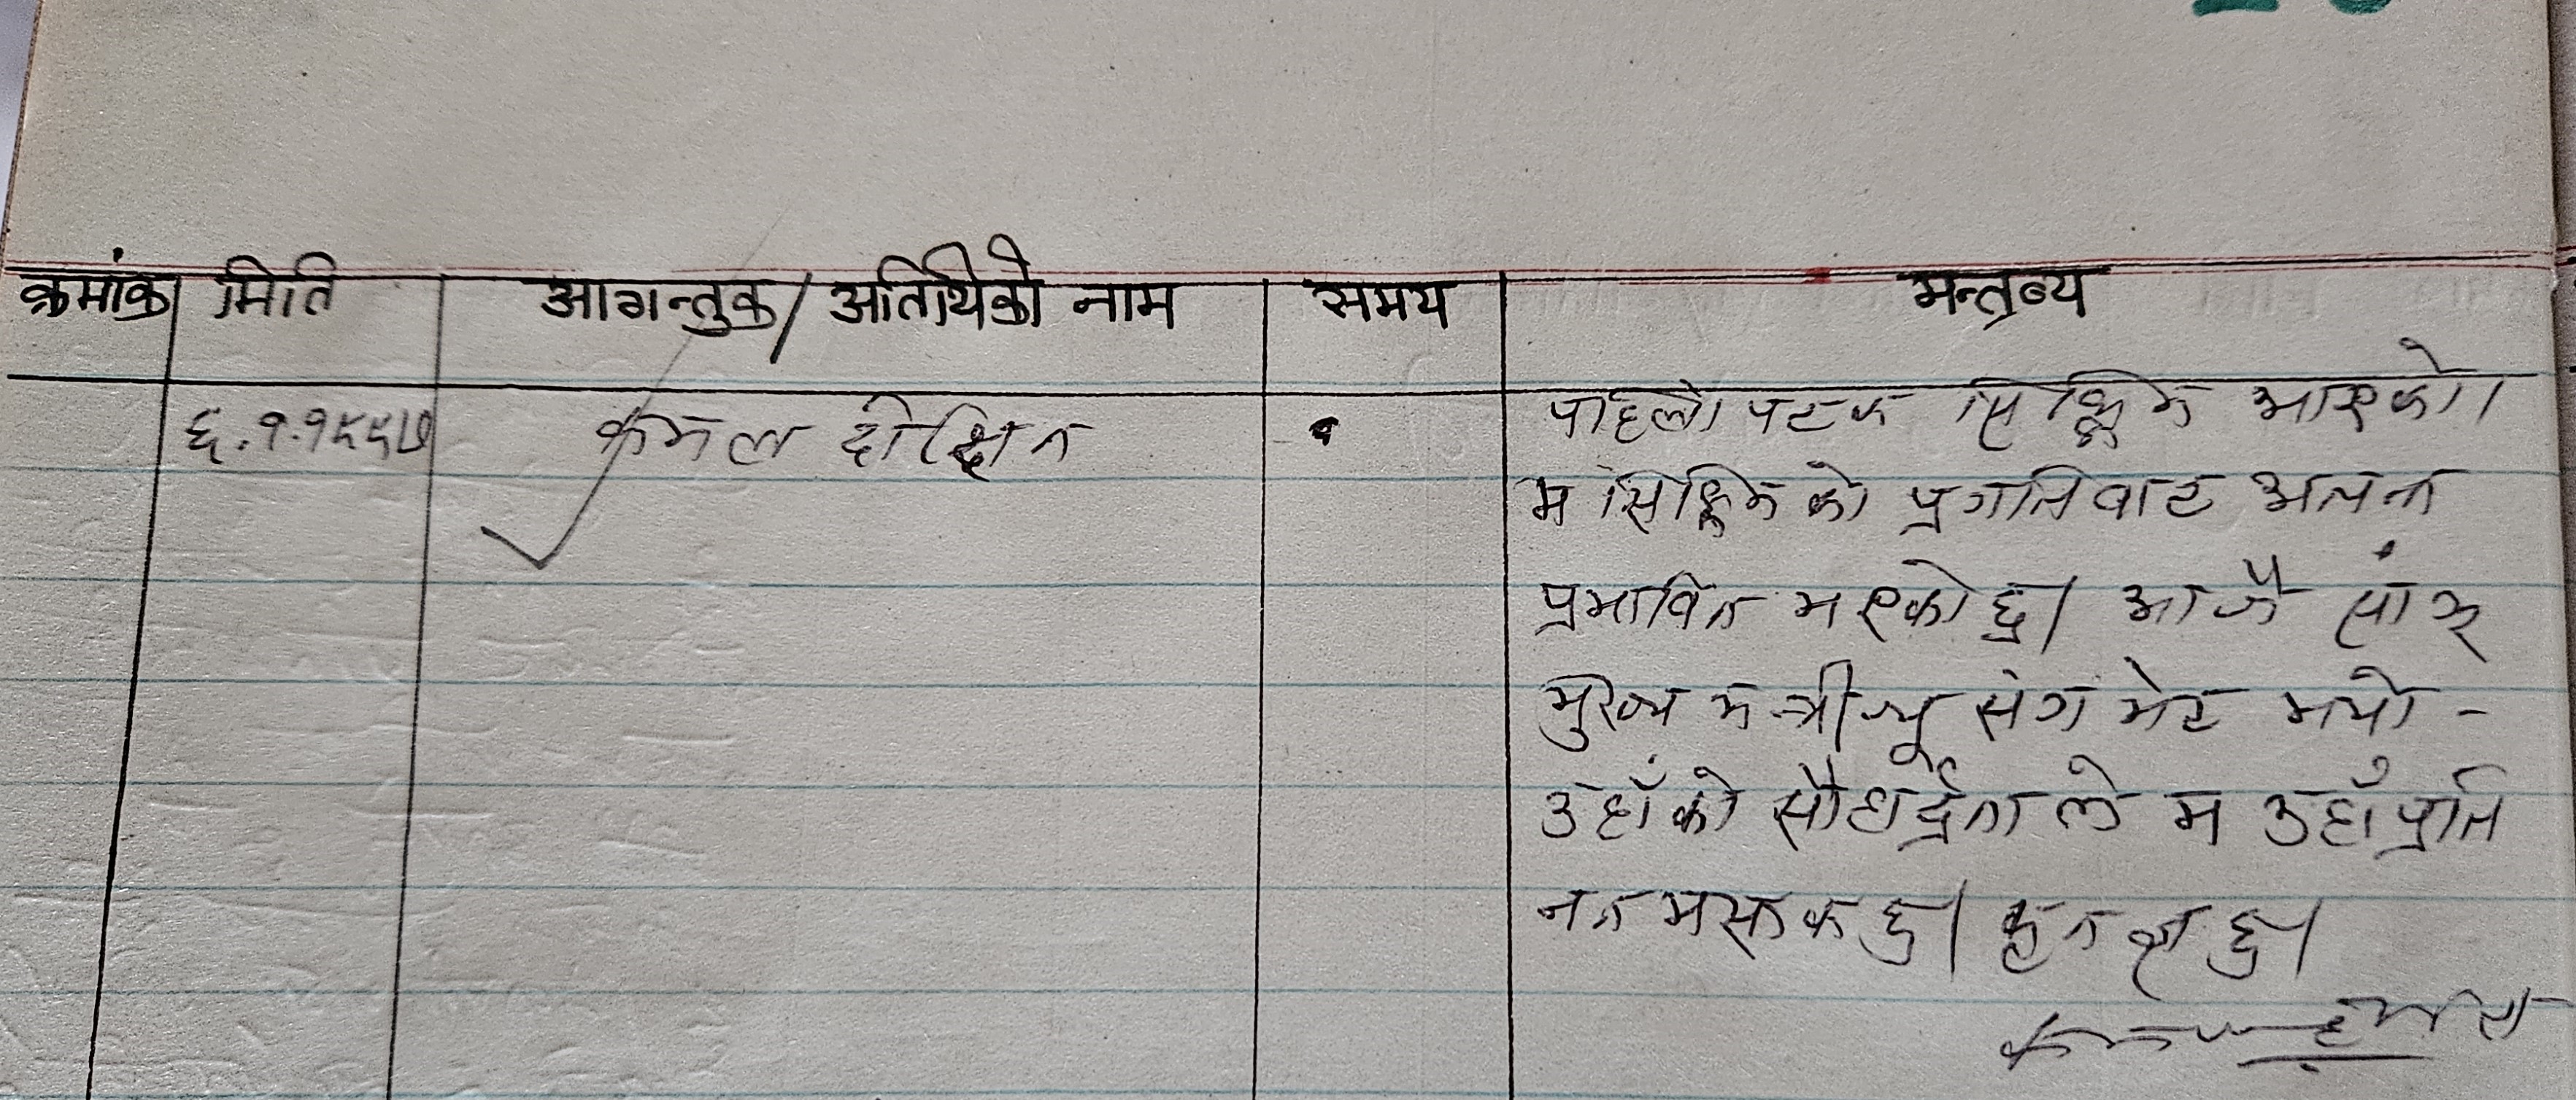 क्रमांक मिति आगन्तुक/अतिथिको नाम समय मन्तव्य
६.१.१९९७ कमल दीक्षित पहिलो पटक सिक्किम आएको।
म सिक्किमको प्रगतिबाट अत्यन्त
प्रभावित भएकोछु। आजै सांझ
मुख्य मन्त्रीज्यू संग भेट भयो -
उहाँको सौहार्द्रताले म उहाँप्रति
नतमस्तक छु। कृतज्ञ छु।